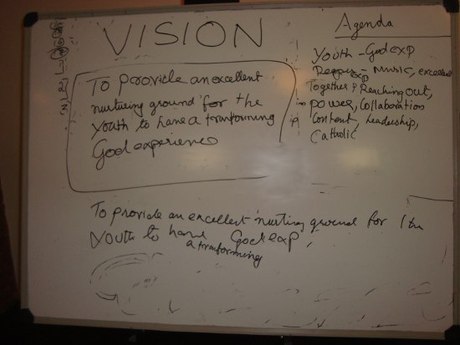 VISION
To provide an excellent
nurturing ground for the
youth to have a transforming
God experience
Agenda
Youth - God exp
Deeper exp Music, excellence
Together & Reaching out,
power, Collaboration
Content, Leadership,
Catholic
To provide an excellent nurting ground for the
Youth to have God exp,
a transforming